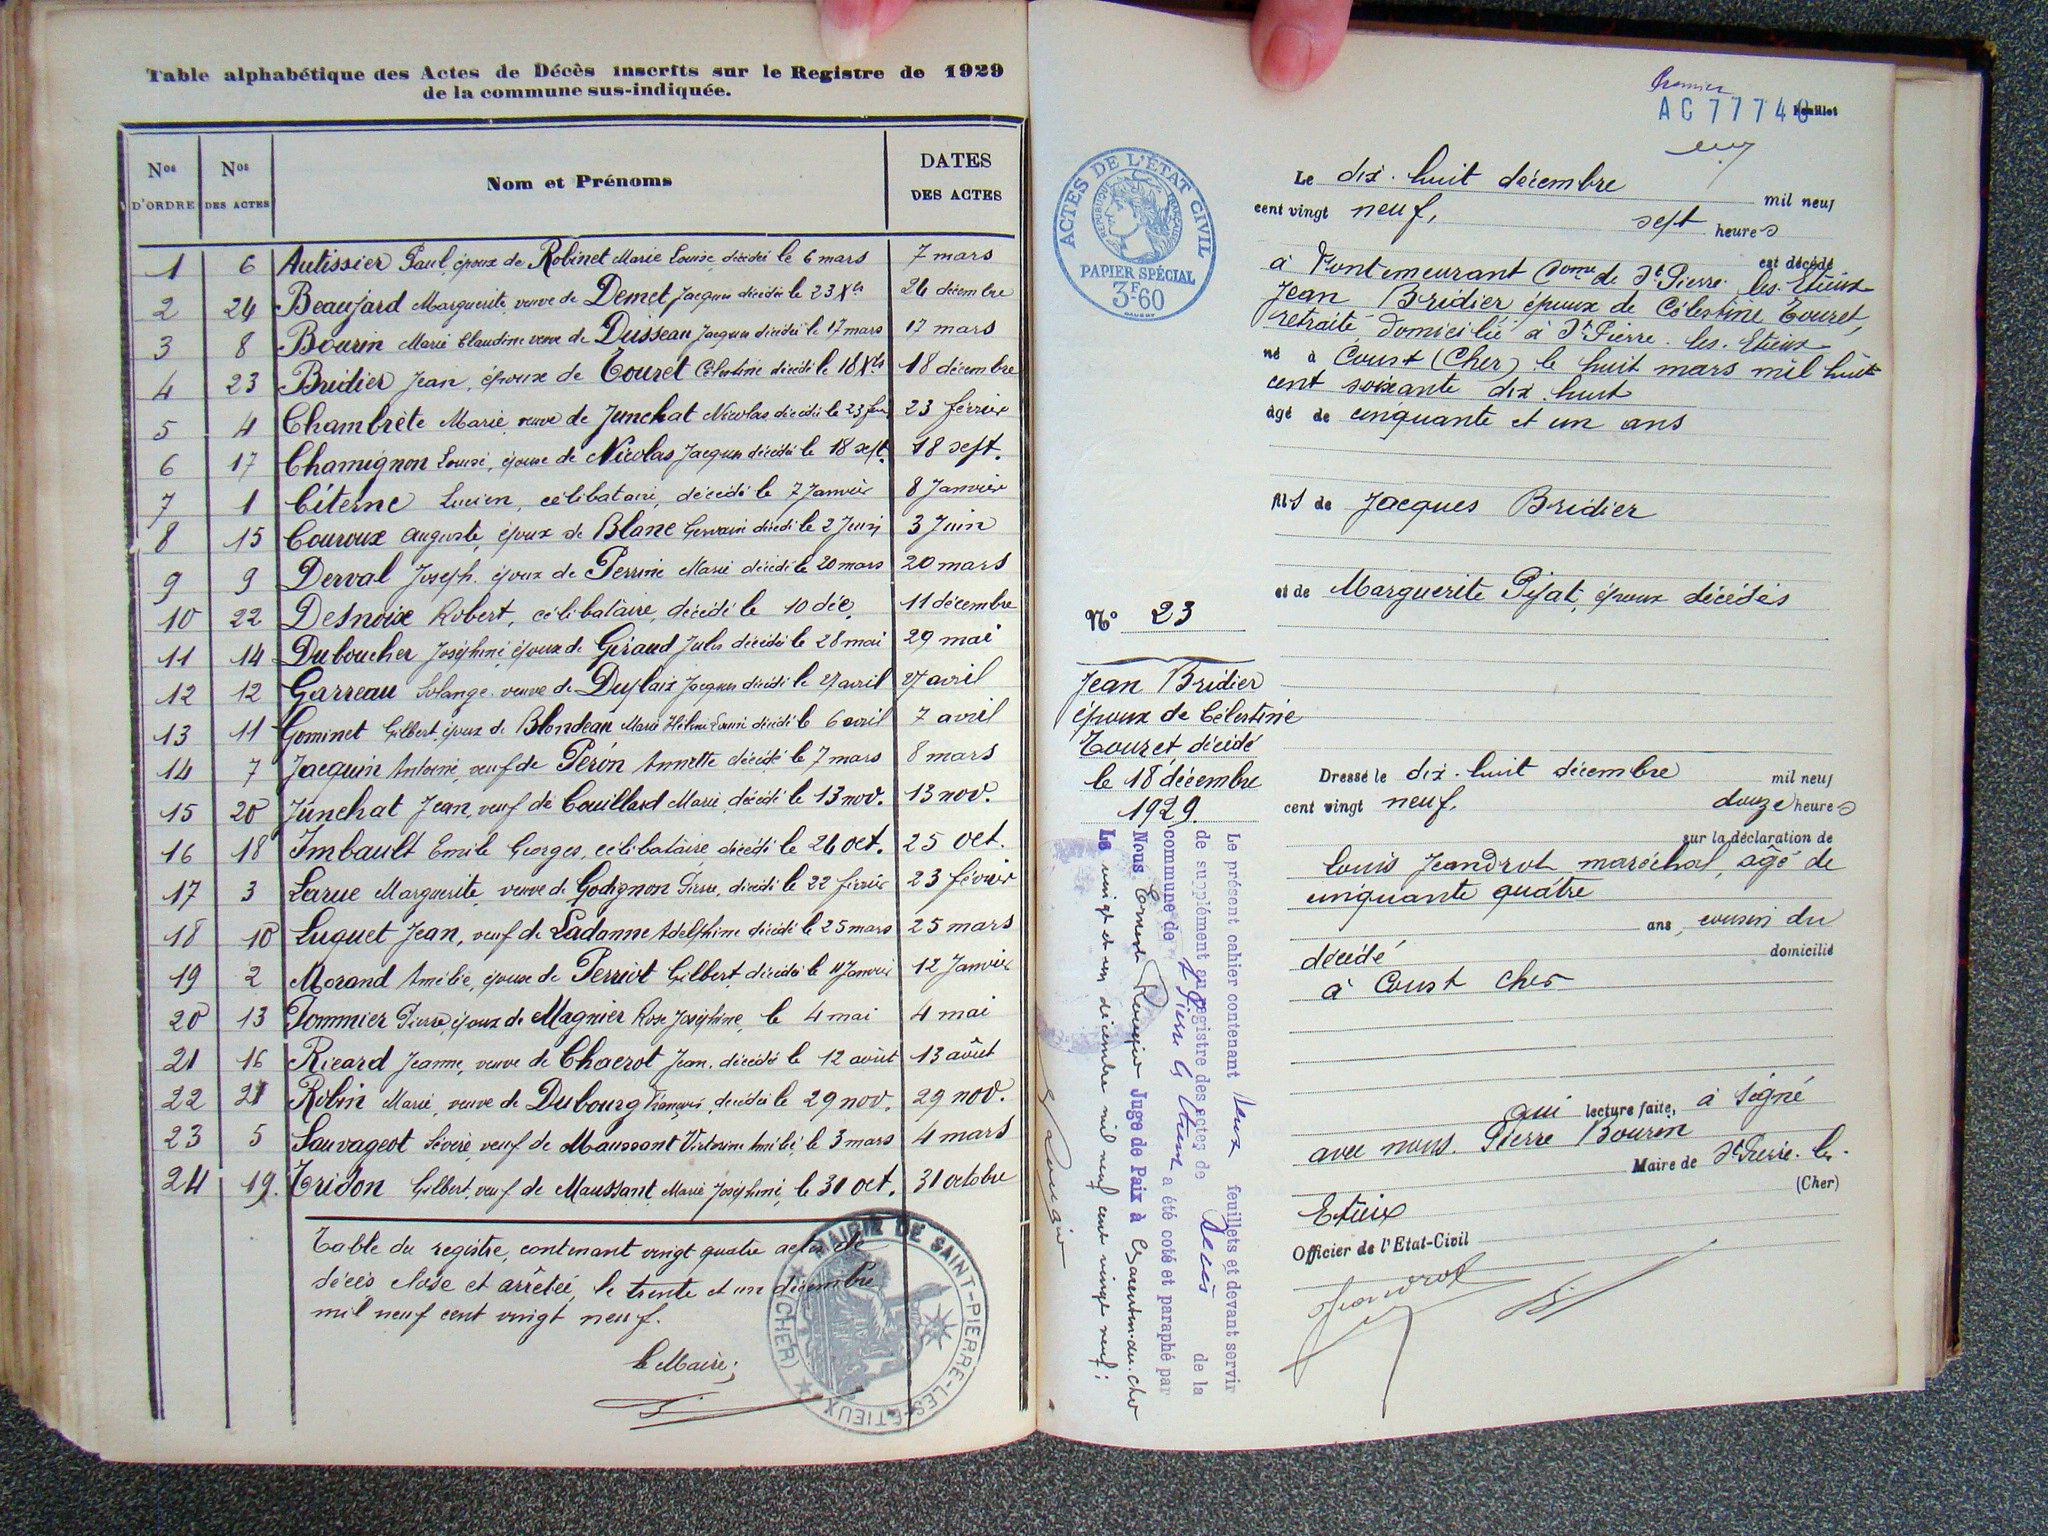 Table alphabétique des Actes de Décès inscrits sur le Registre de 1929
de la commune sus-indiquée.
Nos D'ORDRE Nos DES ACTES Nom et Prénoms DATES DES ACTES
1 6 Autissier Paul, époux de Robinet Marie Louise, décédé le 6 mars 7 mars
2 24 Beaujard Marguerite, veuve de Demet Jacques décédée le 23 Xbre 24 décembre
3 8 Bourin Marie Claudine veuve de Dusseau Jacques décédée le 17 mars 17 mars
4 23 Bridier Jean, époux de Touret Célestine décédé le 18 Xbre 18 décembre
5 4 Chambrète Marie, veuve de Junchat Nicolas décédée le 23 fév 23 février
6 17 Chamignon Louise, épouse de Nicolas Jacques décédée le 18 sept. 18 sept.
7 1 Citerne Lucien, célibataire, décédé le 7 Janvier 8 Janvier
8 15 Couroux Auguste, époux de Blanc décédé le 2 Juin 3 Juin
9 9 Derval Joseph, époux de Perrine Marie décédé le 20 mars 20 mars
10 22 Desnoix Robert, célibataire, décédé le 10 déc. 11 décembre
11 14 Duboucher Joséphine, épouse de Géraud Jules décédée le 28 mai 29 mai
12 12 Garreau Solange, veuve de Duplaix Jacques décédée le 27 avril 27 avril
13 11 Gominet Gilbert, époux de Blondeau Marie Hélène décédé le 6 avril 7 avril
14 7 Jacquin Antoine, veuf de Péron Annette décédé le 7 mars 8 mars
15 20 Junchat Jean, veuf de Couillard Marie, décédé le 13 nov. 13 nov.
16 18 Imbault Emile Georges, célibataire, décédé le 24 oct. 25 oct.
17 3 Larue Marguerite, veuve de Godignon Pierre, décédée le 22 février 23 février
18 10 Luquet Jean, veuf de Ladanne Adelphine décédé le 25 mars 25 mars
19 2 Morand Amélie, épouse de Perriot Gilbert, décédée le 11 Janvier 12 Janvier
20 13 Pommier Pierre, époux de Magnier Rose Joséphine, le 4 mai 4 mai
21 16 Ricard Jeanne, veuve de Chaerot Jean, décédée le 12 août 13 août
22 21 Robin Marie, veuve de Dubourg François, décédée le 29 nov. 29 nov.
23 5 Sauvageot Sévère, veuf de Maussant Victorine Amélie, le 3 mars 4 mars
24 19. Tridon Gilbert, veuf de Maussant Marie Joséphine, le 31 oct. 31 octobre
Table du registre, contenant vingt quatre actes de
décès close et arrêtée, le trente et un décembre
mil neuf cent vingt neuf.
le Maire;
MAIRIE DE SAINT-PIERRE-LES-ÉTIEUX
(CHER)
Premier
AC 77740 Feuillet
ACTES DE L'ÉTAT CIVIL
RÉPUBLIQUE FRANÇAISE
PAPIER SPÉCIAL
3F60
Le dix-huit décembre mil neuf
cent vingt neuf, sept heures
est décédé
à Pontemeurant Comne de St Pierre-les-Etieux
Jean Bridier époux de Célestine Touret,
retraité domicilié à St Pierre-les-Etieux
né à Coust (Cher) le huit mars mil huit
cent soixante dix-huit
âgé de cinquante et un ans
fils de Jacques Bridier
et de Marguerite Pijat, époux décédés
N° 23
Jean Bridier
époux de Célestine
Touret décédé
le 18 décembre
1929.
Dressé le dix-huit décembre mil neuf
cent vingt neuf, douze heures
sur la déclaration de
Louis Jeandrot, maréchal, âgé de
cinquante quatre
ans, cousin du
décédé domicilié
à Coust Cher
qui lecture faite, a signé
avec nous. Pierre Bourin
Maire de St Pierre-les-
(Cher)
Etieux
Officier de l'Etat-Civil
Jeandrot
Le présent cahier contenant deux feuillets et devant servir
de supplément au registre des actes de décès de la
commune de St Pierre les Etieux a été coté et paraphé par
Nous Ernest Juge de Paix à Charenton-du-Cher
Le vingt et un décembre mil neuf cent vingt neuf;